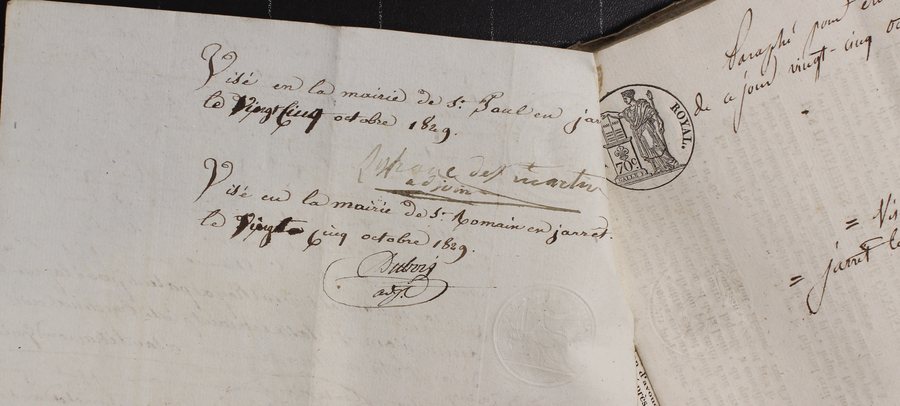 Visé en la mairie de St. Paul en jarr
le Vingt Cinq octobre 1829.
de St martin
adjoint
Visé en la mairie de St. Romain en jarret.
le Vingt Cinq octobre 1829.
Dubois
adjt.
Paraphé pour
de ce jour vingt-cinq oc
ROYAL.
70c
= Vis
= jarret le
d'avou
près